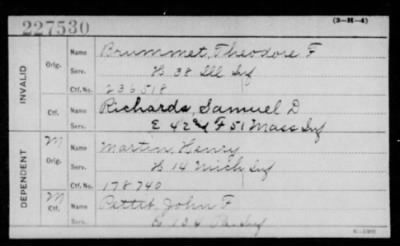 227530
(3-H-4)
INVALID
Orig.
Name Brummet, Theodore F
Serv. B 38 Ill Inf
Ctf. No. 236518
Ctf.
Name Richards, Samuel D
Serv. E 42 & F 51 Mass Inf
DEPENDENT
M
Orig.
Name Martin, Henry
Serv. B 14 Mich Inf
Ctf. No. 178740
M
Ctf.
Name Pettit, John F
Serv. 134 Pa Inf